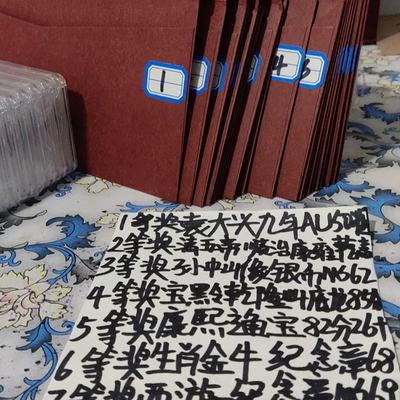 1
4
3
1等奖袁大头九年AU53
2等奖五帝 顺治康雍乾嘉
3等奖孙中山像银币MS62
4等奖宝黔乾隆 85
5等奖康熙漁宝82分26十
6等奖生肖金牛纪念章68
7等奖西游纪念章 69